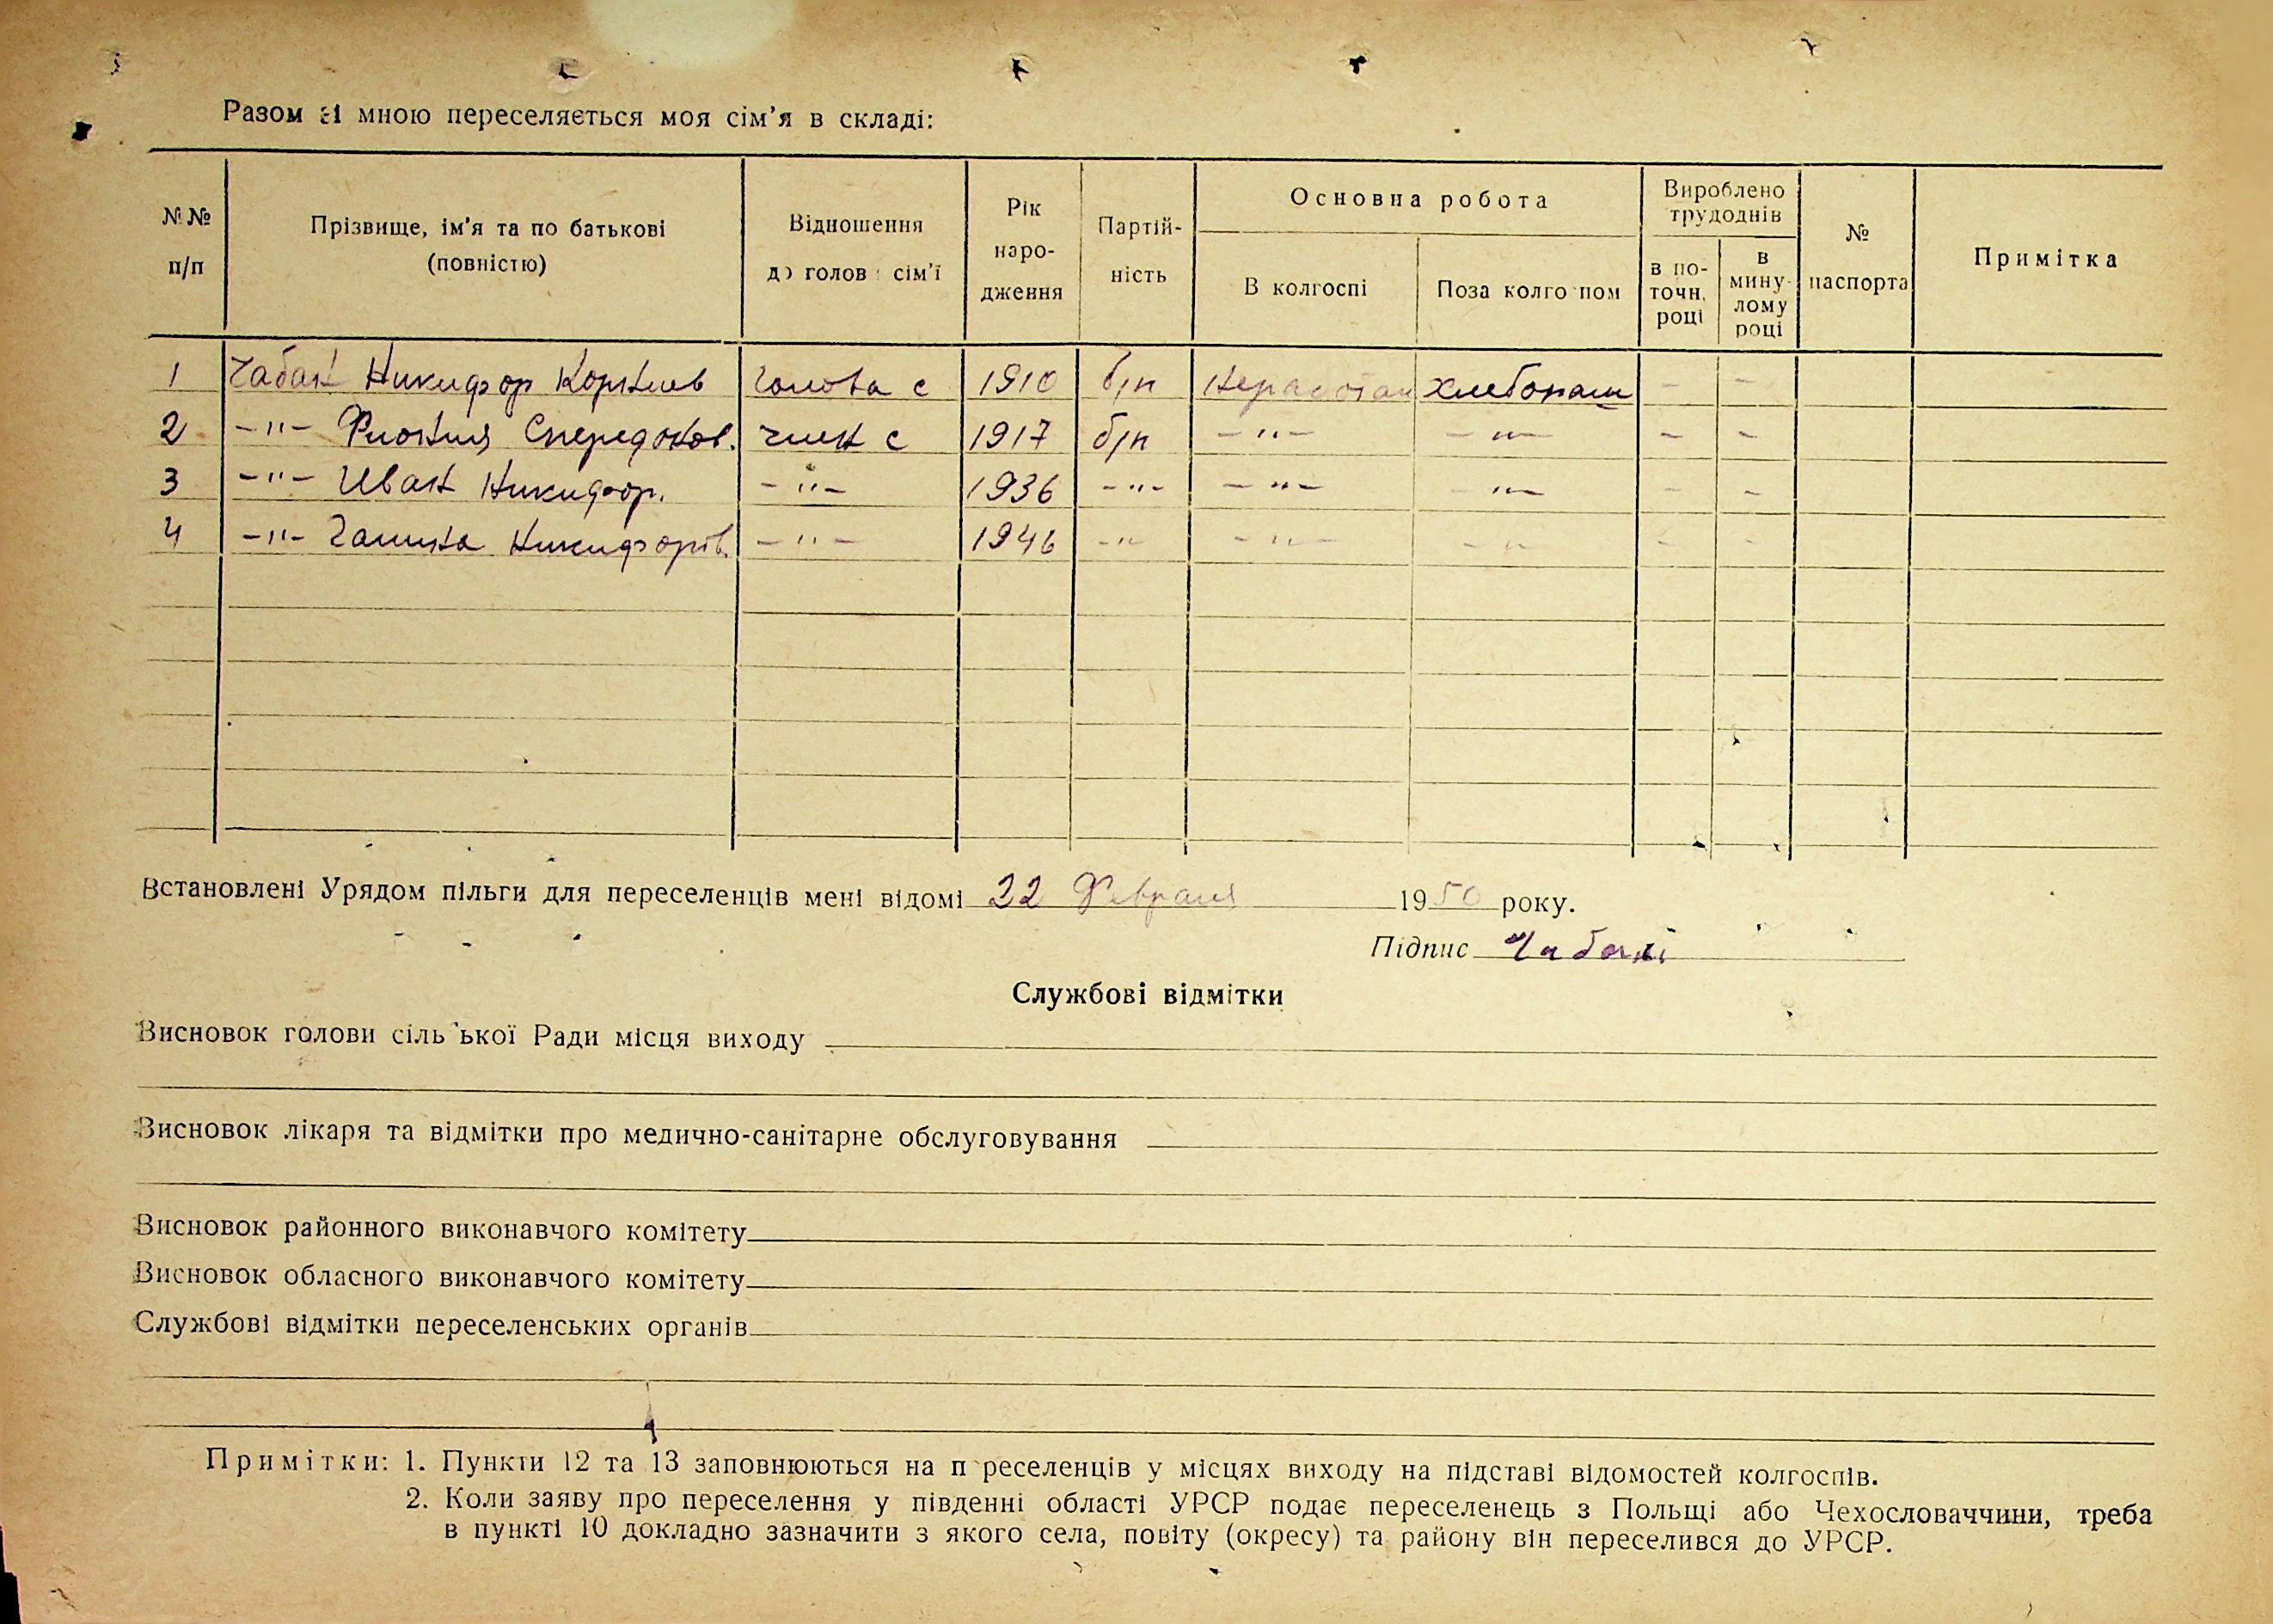 Разом зі мною переселяється моя сім’я в складі:
№№ п/п | Прізвище, ім’я та по батькові (повністю) | Відношення до голови сім’ї | Рік народження | Партійність | Основна робота | Вироблено трудоднів | № паспорта | Примітка
В колгоспі | Поза колгоспом | в поточн. році | в минулому році
1 Чабан Никифор Корниев Голова с 1910 б/п Неработал хлебопаш – –
2 –"– Фиония Спередонов. член с 1917 б/п –"– –"– – –
3 –"– Иван Никифор. –"– 1936 –"– –"– –"– – –
4 –"– Галина Никифорів. –"– 1946 –"– –"– –"– – –
Встановлені Урядом пільги для переселенців мені відомі 22 Февраля 1950 року.
Підпис Чабан
Службові відмітки
Висновок голови сільської Ради місця виходу
Висновок лікаря та відмітки про медично-санітарне обслуговування
Висновок районного виконавчого комітету
Висновок обласного виконавчого комітету
Службові відмітки переселенських органів
Примітки: 1. Пункти 12 та 13 заповнюються на переселенців у місцях виходу на підставі відомостей колгоспів.
2. Коли заяву про переселення у південні області УРСР подає переселенець з Польщі або Чехословаччини, треба
в пункті 10 докладно зазначити з якого села, повіту (окресу) та району він переселився до УРСР.